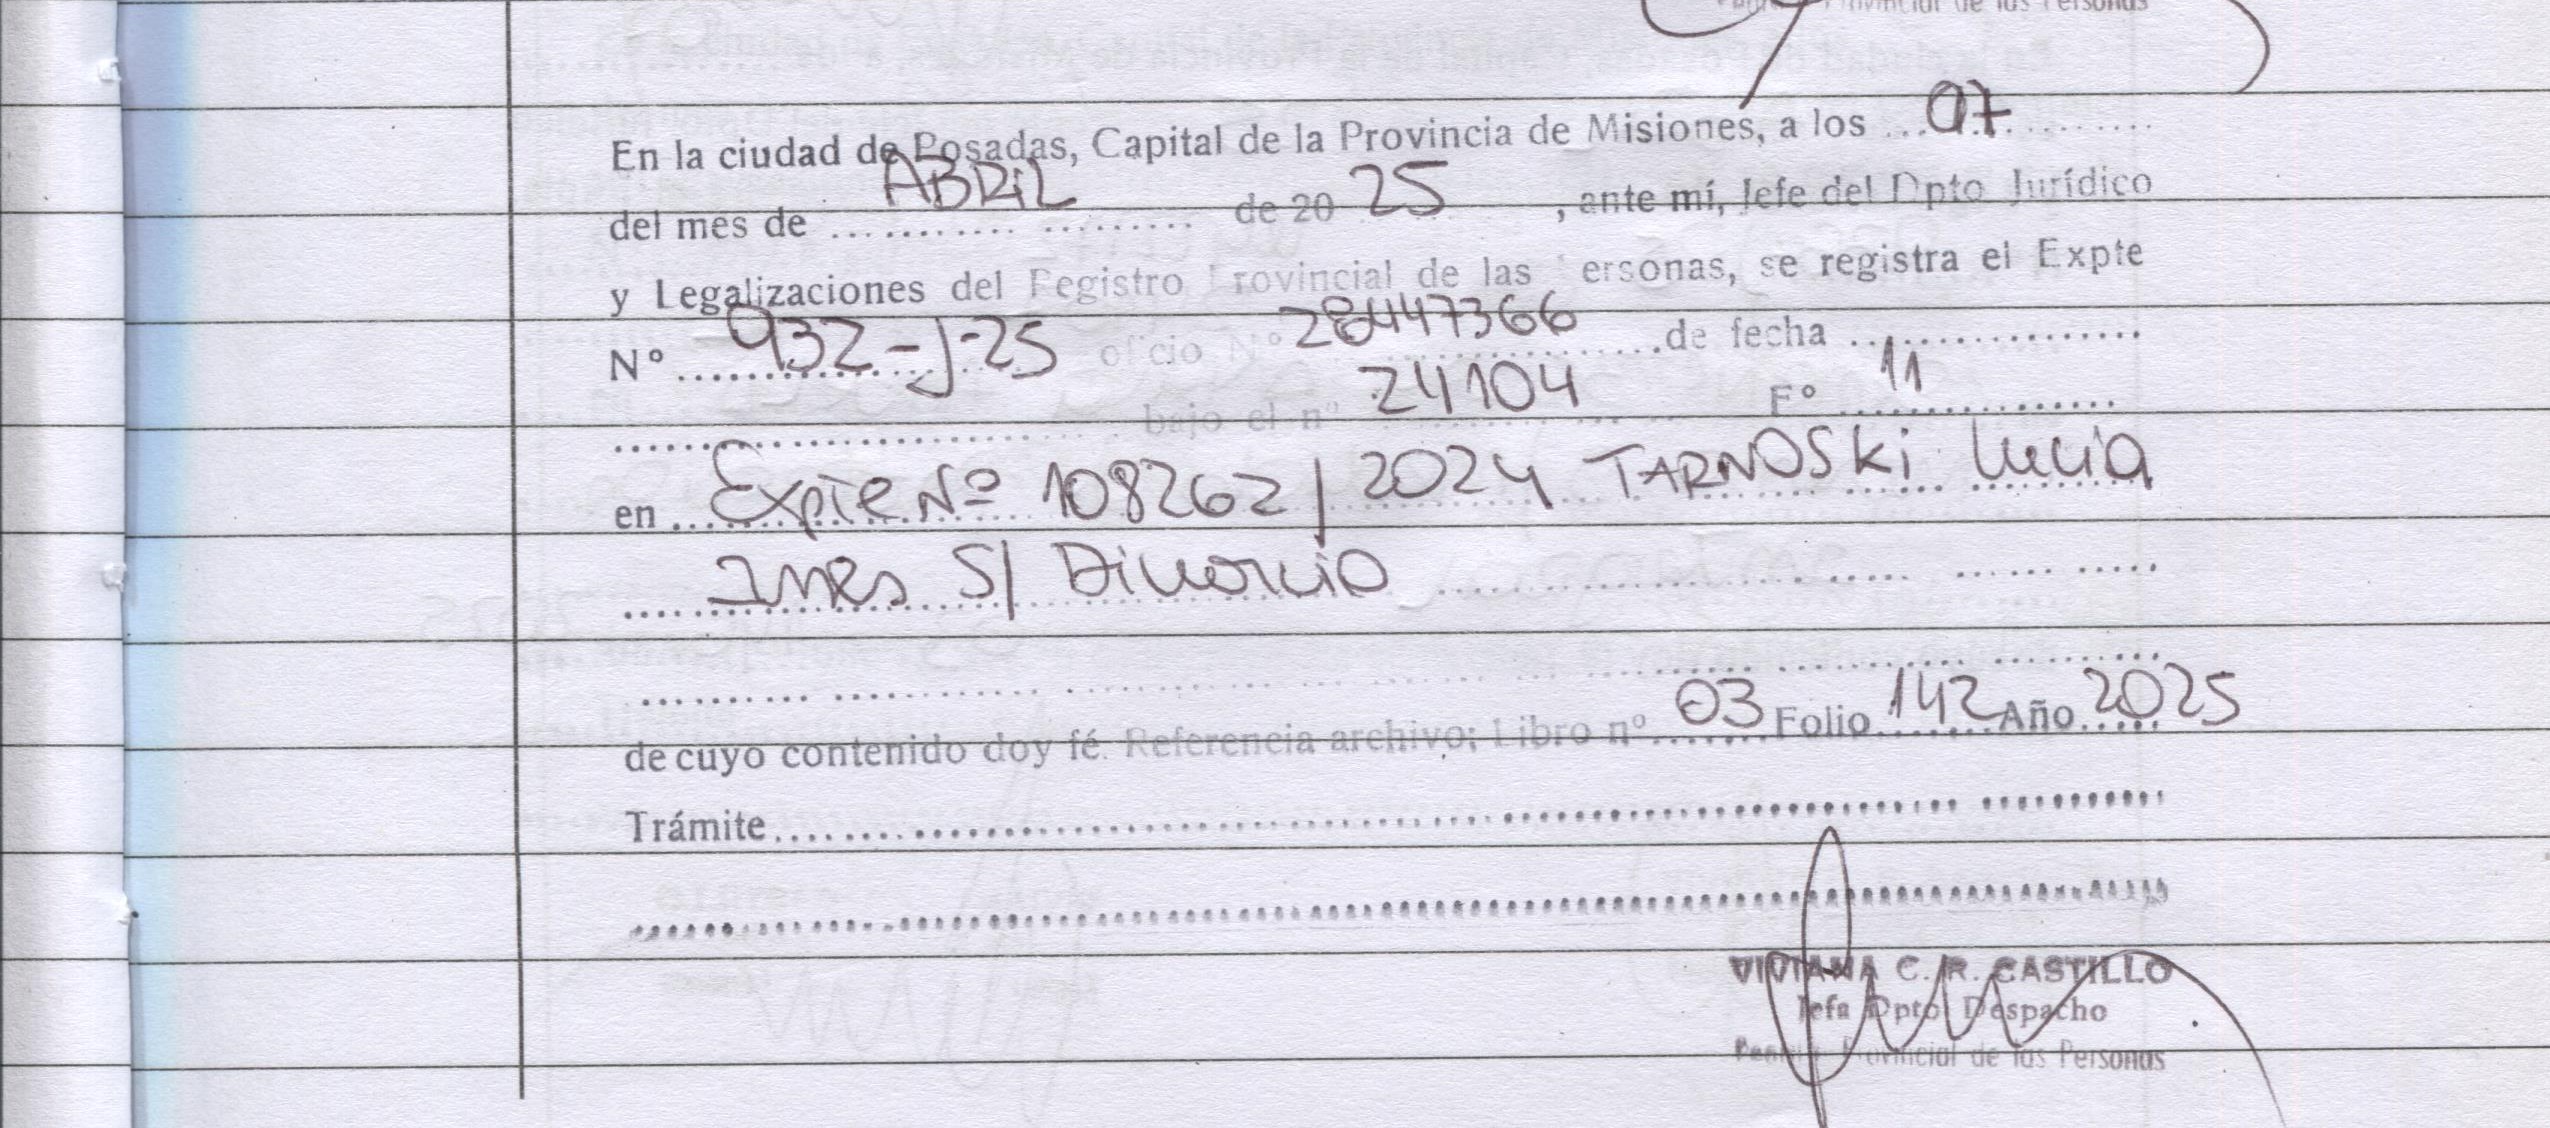 Provincial de las Personas
En la ciudad de Posadas, Capital de la Provincia de Misiones, a los ... 07 ..........
del mes de ............ ABRIL .......... de 20 25 , ante mí, Jefe del Dpto Jurídico
y Legalizaciones del Registro Provincial de las Personas, se registra el Expte
Nº ........ 932-J-25 oficio Nº 28447366 ........ de fecha ..................
........................ bajo el nº 24104 Fº 11 ..................
en ... Expte Nº 108262/2024 TARNOSKi Lucia
.... Ines S/ Divorcio ....................
........................................
de cuyo contenido doy fé. Referencia archivo; Libro nº 03 Folio 142 Año 2025
Trámite ........................................
........................................
VIVIANA C. R. CASTILLO
Jefa Dpto. Despacho
Provincial de las Personas